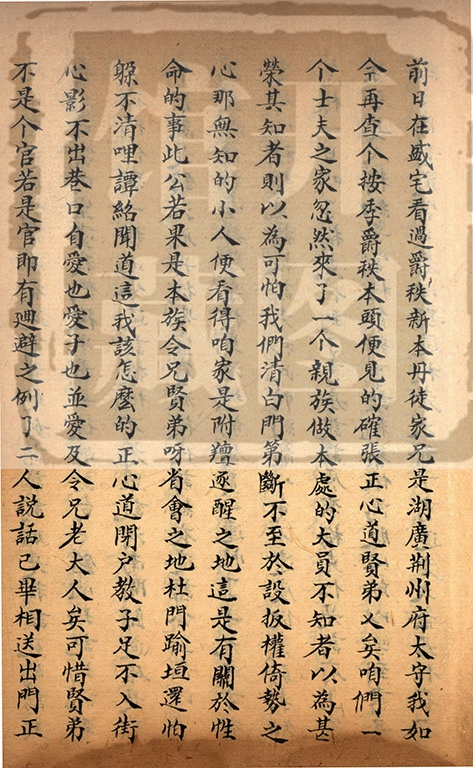 前日在盛宅看過爵秩新本丹徒家兄是湖廣荆州府太守我如
今再查个按季爵秩本頭便見的確張正心道賢弟乂矣咱們一
个士夫之家忽然來了一个親族做本處的大員不知者以為甚
榮其知者則以為可怕我們清白門第斷不至於設扳權倚勢之
心那無知的小人便看得咱家是附羶逐醒之地這是有關於性
命的事此公若果是本族令兄賢弟呀省會之地杜門踰垣還怕
躲不清哩譚紹聞道這我該怎麼的正心道閉户教子足不入街
心影不出巷口自愛也愛子也並愛及令兄老大人矣可惜賢弟
不是个官若是官即有迴避之例了二人說話已畢相送出門正